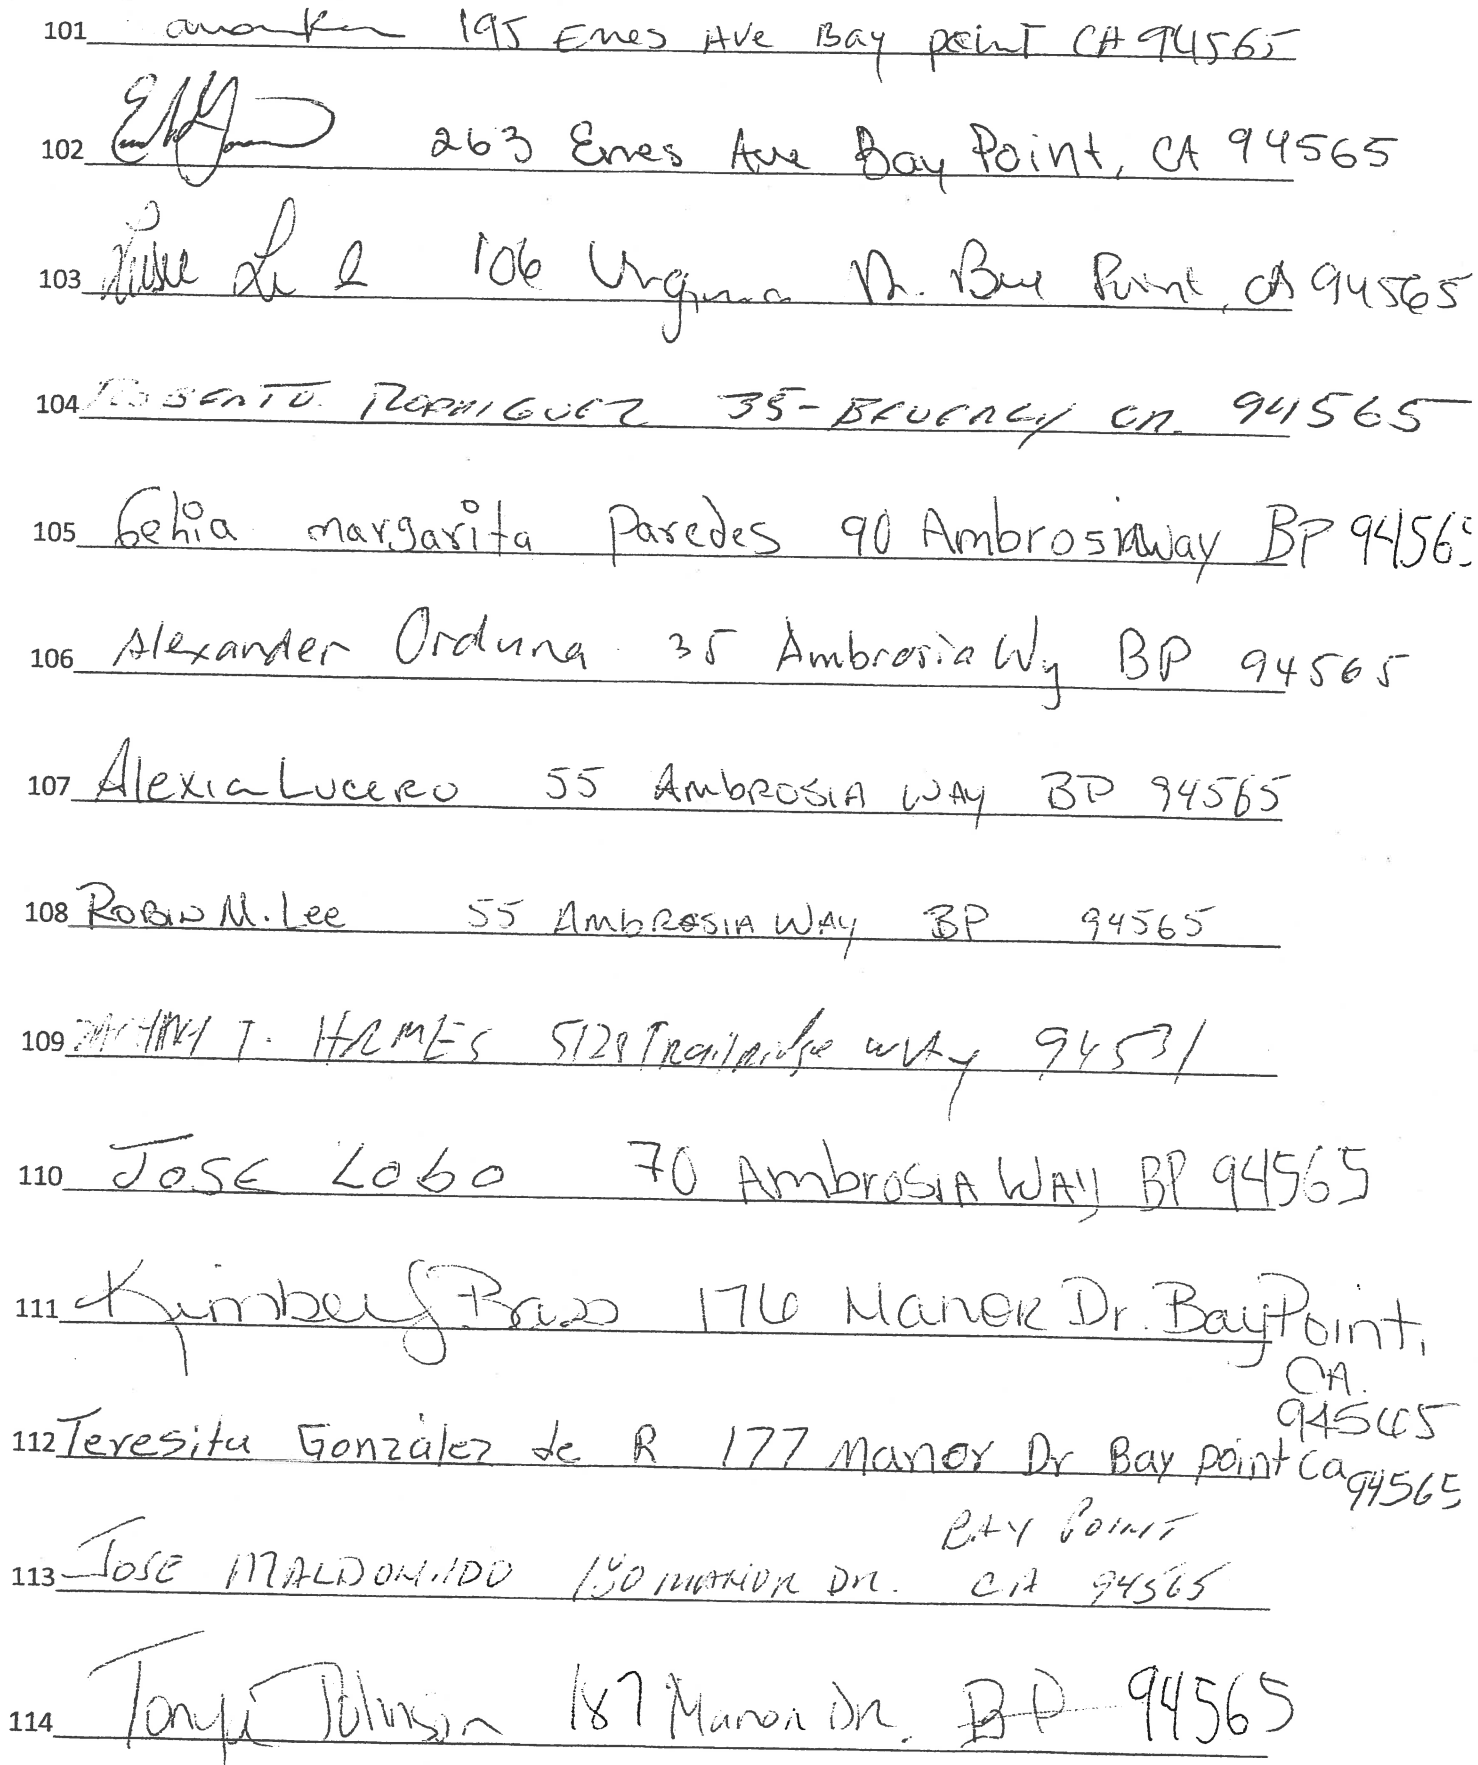 101 195 Enes Ave Bay point CA 94565
102 263 Enes Ave Bay Point, CA 94565
103 106 Virginia Dr. Bay Point, CA 94565
104 Roberto Rodriguez 35- Beverly CR. 94565
105 margarita Paredes 90 Ambrosia Way BP 94565
106 Alexander Orduna 35 Ambrosia Wy BP 94565
107 Alexia Lucero 55 AMBROSIA WAY BP 94565
108 Robin M. Lee 55 AMBROSIA WAY BP 94565
109 T. 5128 Trailridge way 94531
110 Jose Lobo 70 Ambrosia Way BP 94565
111 Kimberly Bass 176 Manor Dr. Bay Point,
CA.
94565
112 Teresita González de R 177 Manor Dr Bay point Ca 94565
BAY POINT
113 JOSE MALDONADO 180 MANOR DR. CA 94565
114 Johnson 187 Manor Dr. BP 94565